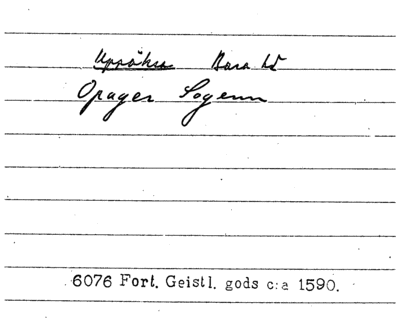 Uppåkra Bara hd
Opager Sogenn
6076 Fort. Geistl. gods c:a 1590.